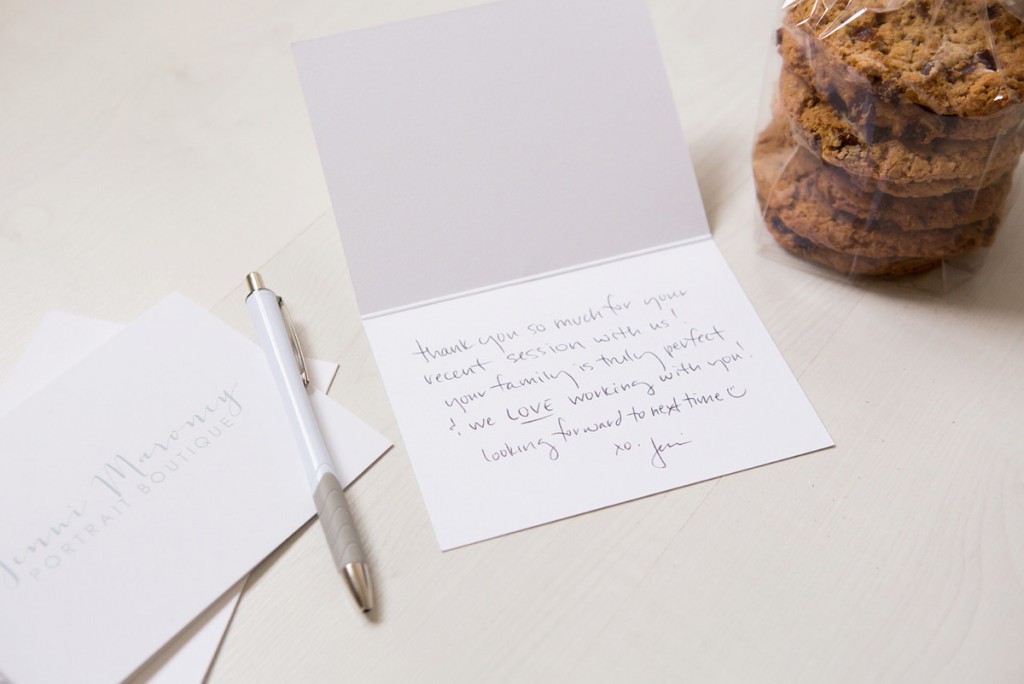 thank you so much for your
recent session with us!
your family is truly perfect
& we LOVE working with you!
looking forward to next time ☺
xo. Jenni
Jenni Maroney
PORTRAIT BOUTIQUE